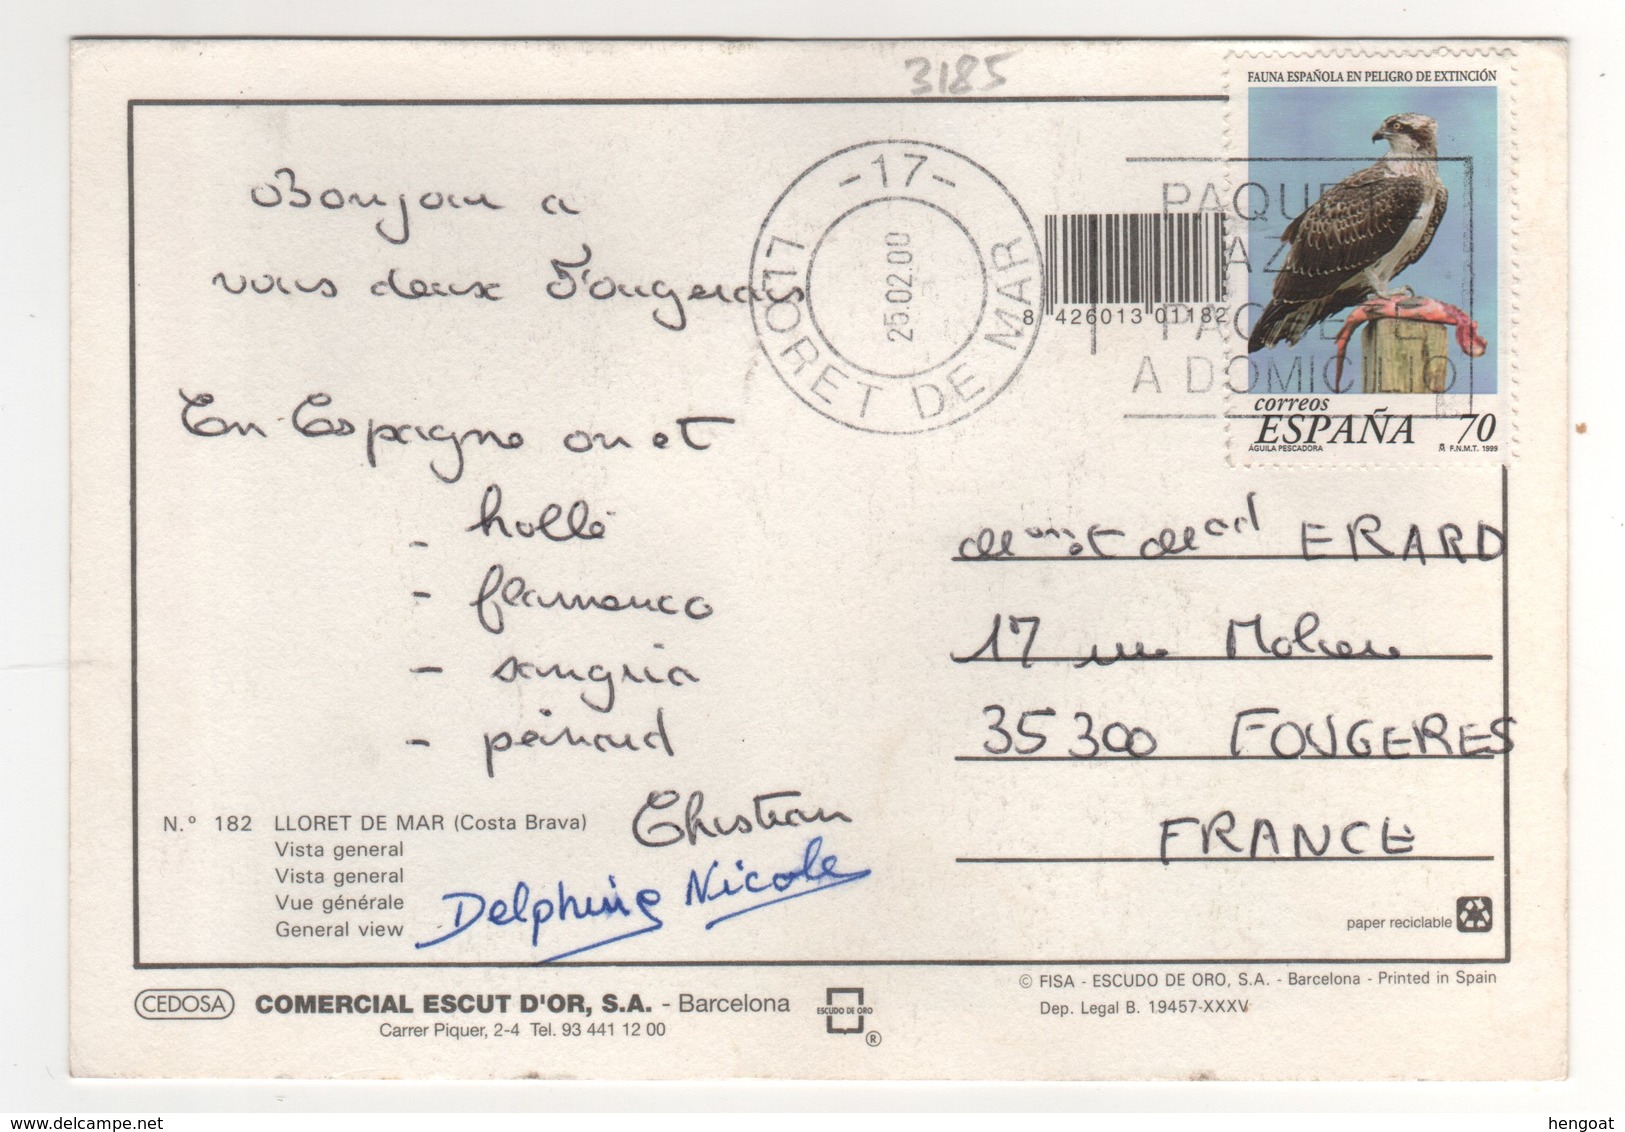 3185
FAUNA ESPAÑOLA EN PELIGRO DE EXTINCIÓN
-17-
17 LLORET DE MAR
25.02.00
PAQUETE
AZ
PAQUETE
A DOMICILIO
8 426013 01182
correos
ESPAÑA 70
ÁGUILA PESCADORA F.N.M.T. 1999
Bonjour a
vous deux Fougerais
En Espagne on est
- hollé
- flamenco
- sangria
- peinard
Christian
Delphine Nicole
Mr et Mad ERARD
17 rue Moliere
35300 FOUGERES
FRANCE
N.º 182 LLORET DE MAR (Costa Brava)
Vista general
Vista general
Vue générale
General view
paper reciclable
© FISA - ESCUDO DE ORO, S.A. - Barcelona - Printed in Spain
Dep. Legal B. 19457-XXXV
CEDOSA COMERCIAL ESCUT D'OR, S.A. - Barcelona
Carrer Piquer, 2-4 Tel. 93 441 12 00
ESCUDO DE ORO ®
delcampe.net
hengoat